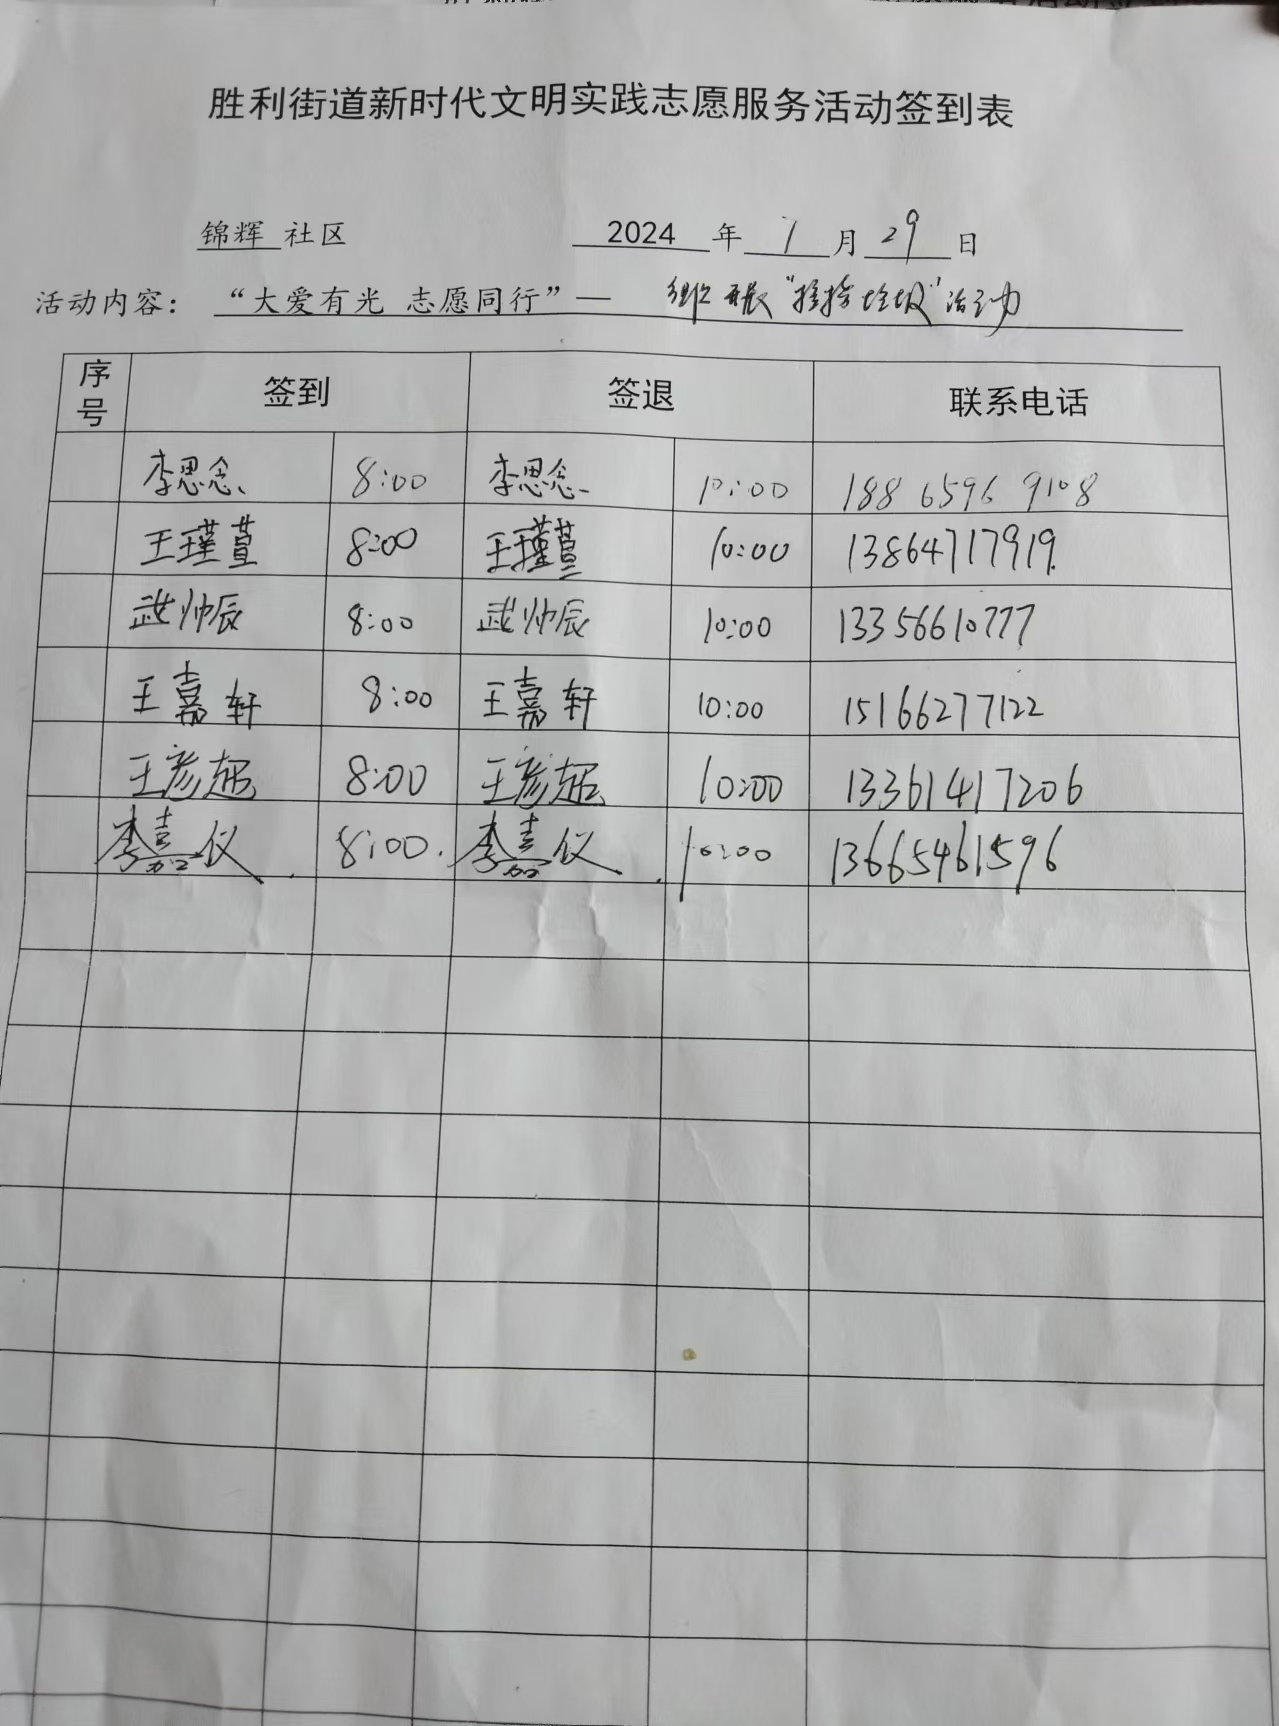 胜利街道新时代文明实践志愿服务活动签到表
锦辉 社区 2024 年 1 月 29 日
活动内容：“大爱有光 志愿同行”— 组织开展“捡拾垃圾”活动
序号 签到 签退 联系电话
李思念 8:00 李思念 10:00 188 6596 9108
王瑾萱 8:00 王瑾萱 10:00 13864717919
武帅辰 8:00 武帅辰 10:00 13356610777
王嘉轩 8:00 王嘉轩 10:00 15166277122
王彦超 8:00 王彦超 10:00 13361417206
李嘉仪 8:00 李嘉仪 10:00 13665461596